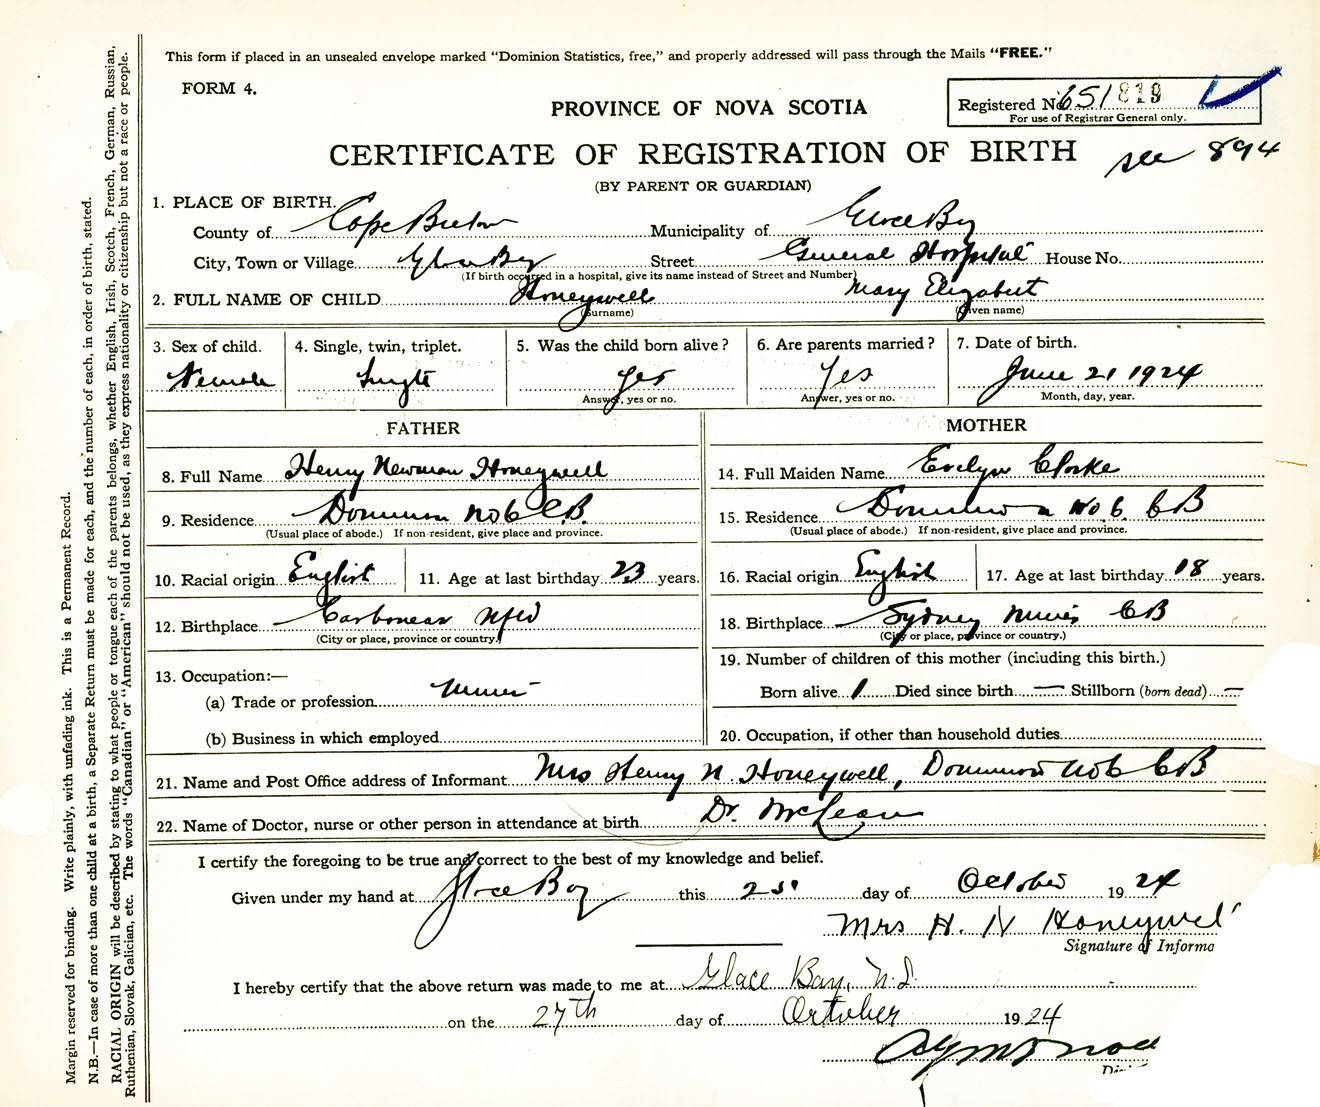 This form if placed in an unsealed envelope marked "Dominion Statistics, free," and properly addressed will pass through the Mails "FREE."
FORM 4.
PROVINCE OF NOVA SCOTIA
Registered No. 651 819
For use of Registrar General only.
CERTIFICATE OF REGISTRATION OF BIRTH
see 894
(BY PARENT OR GUARDIAN)
1. PLACE OF BIRTH.
County of Cape Breton Municipality of Glace Bay
City, Town or Village Glace Bay Street General Hospital House No.
(If birth occurred in a hospital, give its name instead of Street and Number)
2. FULL NAME OF CHILD Honeywell Mary Elizabeth
(Surname) (Given name)
3. Sex of child. 4. Single, twin, triplet. 5. Was the child born alive? 6. Are parents married? 7. Date of birth.
Female Single yes Yes June 21 1924
Answer, yes or no. Answer, yes or no. Month, day, year.
FATHER MOTHER
8. Full Name Henry Newman Honeywell 14. Full Maiden Name Evelyn Clarke
9. Residence Dominion No 6 C.B. 15. Residence Dominion No. 6. CB
(Usual place of abode.) If non-resident, give place and province. (Usual place of abode.) If non-resident, give place and province.
10. Racial origin English 11. Age at last birthday 23 years. 16. Racial origin English 17. Age at last birthday 18 years.
12. Birthplace Carbonear Nfld 18. Birthplace Sydney Mines CB
(City or place, province or country.) (City or place, province or country.)
13. Occupation:— 19. Number of children of this mother (including this birth.)
(a) Trade or profession Miner Born alive 1 Died since birth — Stillborn (born dead) —
(b) Business in which employed 20. Occupation, if other than household duties
21. Name and Post Office address of Informant Mrs Henry N. Honeywell, Dominion No 6 CB
22. Name of Doctor, nurse or other person in attendance at birth Dr. McLean
I certify the foregoing to be true and correct to the best of my knowledge and belief.
Given under my hand at Glace Bay this day of October 19 24
Mrs H. N Honeywel
Signature of Informa
I hereby certify that the above return was made to me at Glace Bay, N.S.
on the 27th day of October 19 24
Margin reserved for binding. Write plainly, with unfading ink. This is a Permanent Record.
N.B.—In case of more than one child at a birth, a Separate Return must be made for each, and the number of each, in order of birth, stated.
RACIAL ORIGIN will be described by stating to what people or tongue each of the parents belongs, whether English, Irish, Scotch, French, German, Russian,
Ruthenian, Slovak, Galician, etc. The words "Canadian" or "American" should not be used, as they express nationality or citizenship but not a race or people.